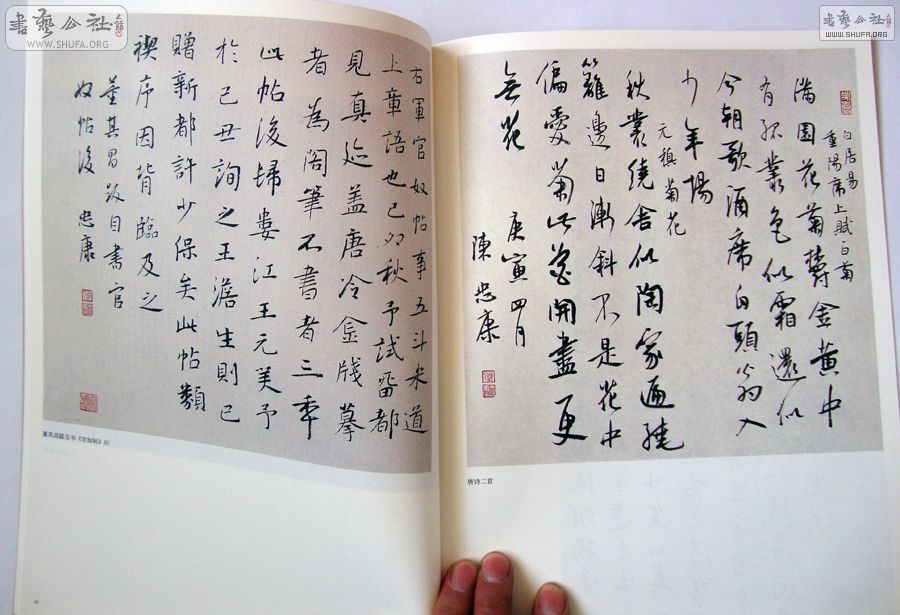 書藝公社
WWW.SHUFA.ORG
書藝公社
WWW.SHUFA.ORG
右軍官奴帖事五斗米道
上章語也己卯秋予試留都
見真迹蓋唐冷金牋摹
者為閣筆不書者三年
此帖後歸婁江王元美予
於己丑詢之王澹生則已
贈新都許少保矣此帖類
禊序因背臨及之
董其昌跋自書官
奴帖後 忠康
董其昌跋自书《官奴帖》后
白居易
重陽席上賦白菊
滿園花菊鬱金黃中
有孤叢色似霜還似
今朝歌酒席白頭翁入
少年場
元稹菊花
秋叢繞舍似陶家遍繞
籬邊日漸斜不是花中
偏愛菊此花開盡更
無花
庚寅四月
陳忠康
唐诗二首